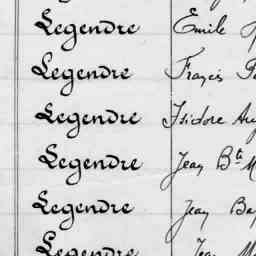 Legendre Emile
Legendre Francis
Legendre Isidore Aug
Legendre Jean Bte M
Legendre Jean Bap
Legendre Jean M